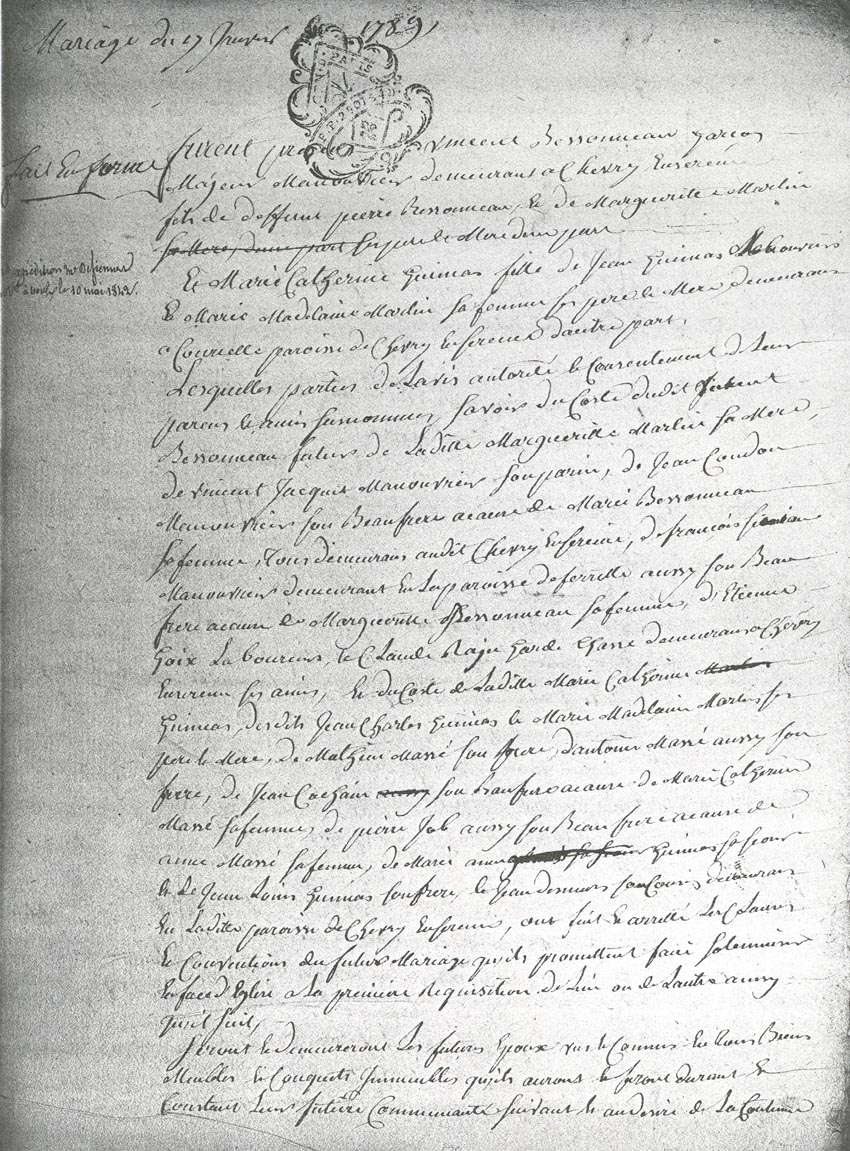 Mariage du 17 Janvier 1789,
fait En forme
furent presens vincent Bessonneau garcon
Majeur Manouvrier demeurant a Chevry Ensereine
fils de deffunt pierre Bessonneau, et de Marguerite Martin
sa Mere, d'une part ses pere et Mere d'une part
Expédition Mr
le 10 mai 1842.
Et Marie Catherine Guimas fille de Jean Guimas Manouvrier
et Marie Madelaine Martin sa femme ses pere et Mere demeurans
a paroisse de Chevry Ensereine d'autre part,
Lesquelles parties de Lavis autorité et Consentement de Leurs
parens et amis Sçavoir du Coste dudit vincent
Bessonneau futur de Laditte Margueritte Martin sa Mere,
de vincent Jacquit Manouvrier son parin, de Jean Coudon
Manouvrier son Beaufrere acause de Marie Bessonneau
sa femme, tous demeurans audit Chevry Ensereine, de françois
Manouvrier demeurant En La paroisse de ferrotte aussy son Beau
frere acause de Margueritte Bessonneau sa femme, d'Etienne
Goix Laboureur, et Claude Raje garde Chasse demeurans a Chevry
Ensereine ses amis, Et du Coste de Laditte Marie Catherine
Guimas, desdits Jean Charles Guimas et Marie Madelaine Martin ses
pere et Mere, de Mathieu Massé son frere, d'antoine Massé aussy son
frere, de Jean Cochain aussy son Beaufrere acause de Marie Catherine
Massé sa femme, de pierre Job aussy son Beau frere acause de
anne Massé sa femme, de Marie anne Guimas sa soeur
et de Jean Louis Guimas son frere, et Jean son Cousin demeurans
En Laditte paroisse de Chevry Ensereine, ont fait et arretté Les Clauses
et Conventions du futur Mariage qu'ils promettent faire solemniser
En face d'Eglise a La premiere Requisition de L'un ou de L'autre ainsy
qu'il suit,
Seront et demeureront Les futurs Epoux uns et Communs En tous Biens
Meubles et Conquets Immeubles qu'ils auront et feront durant et
Constant Leur future Communauté suivant et au desire de La Coutume